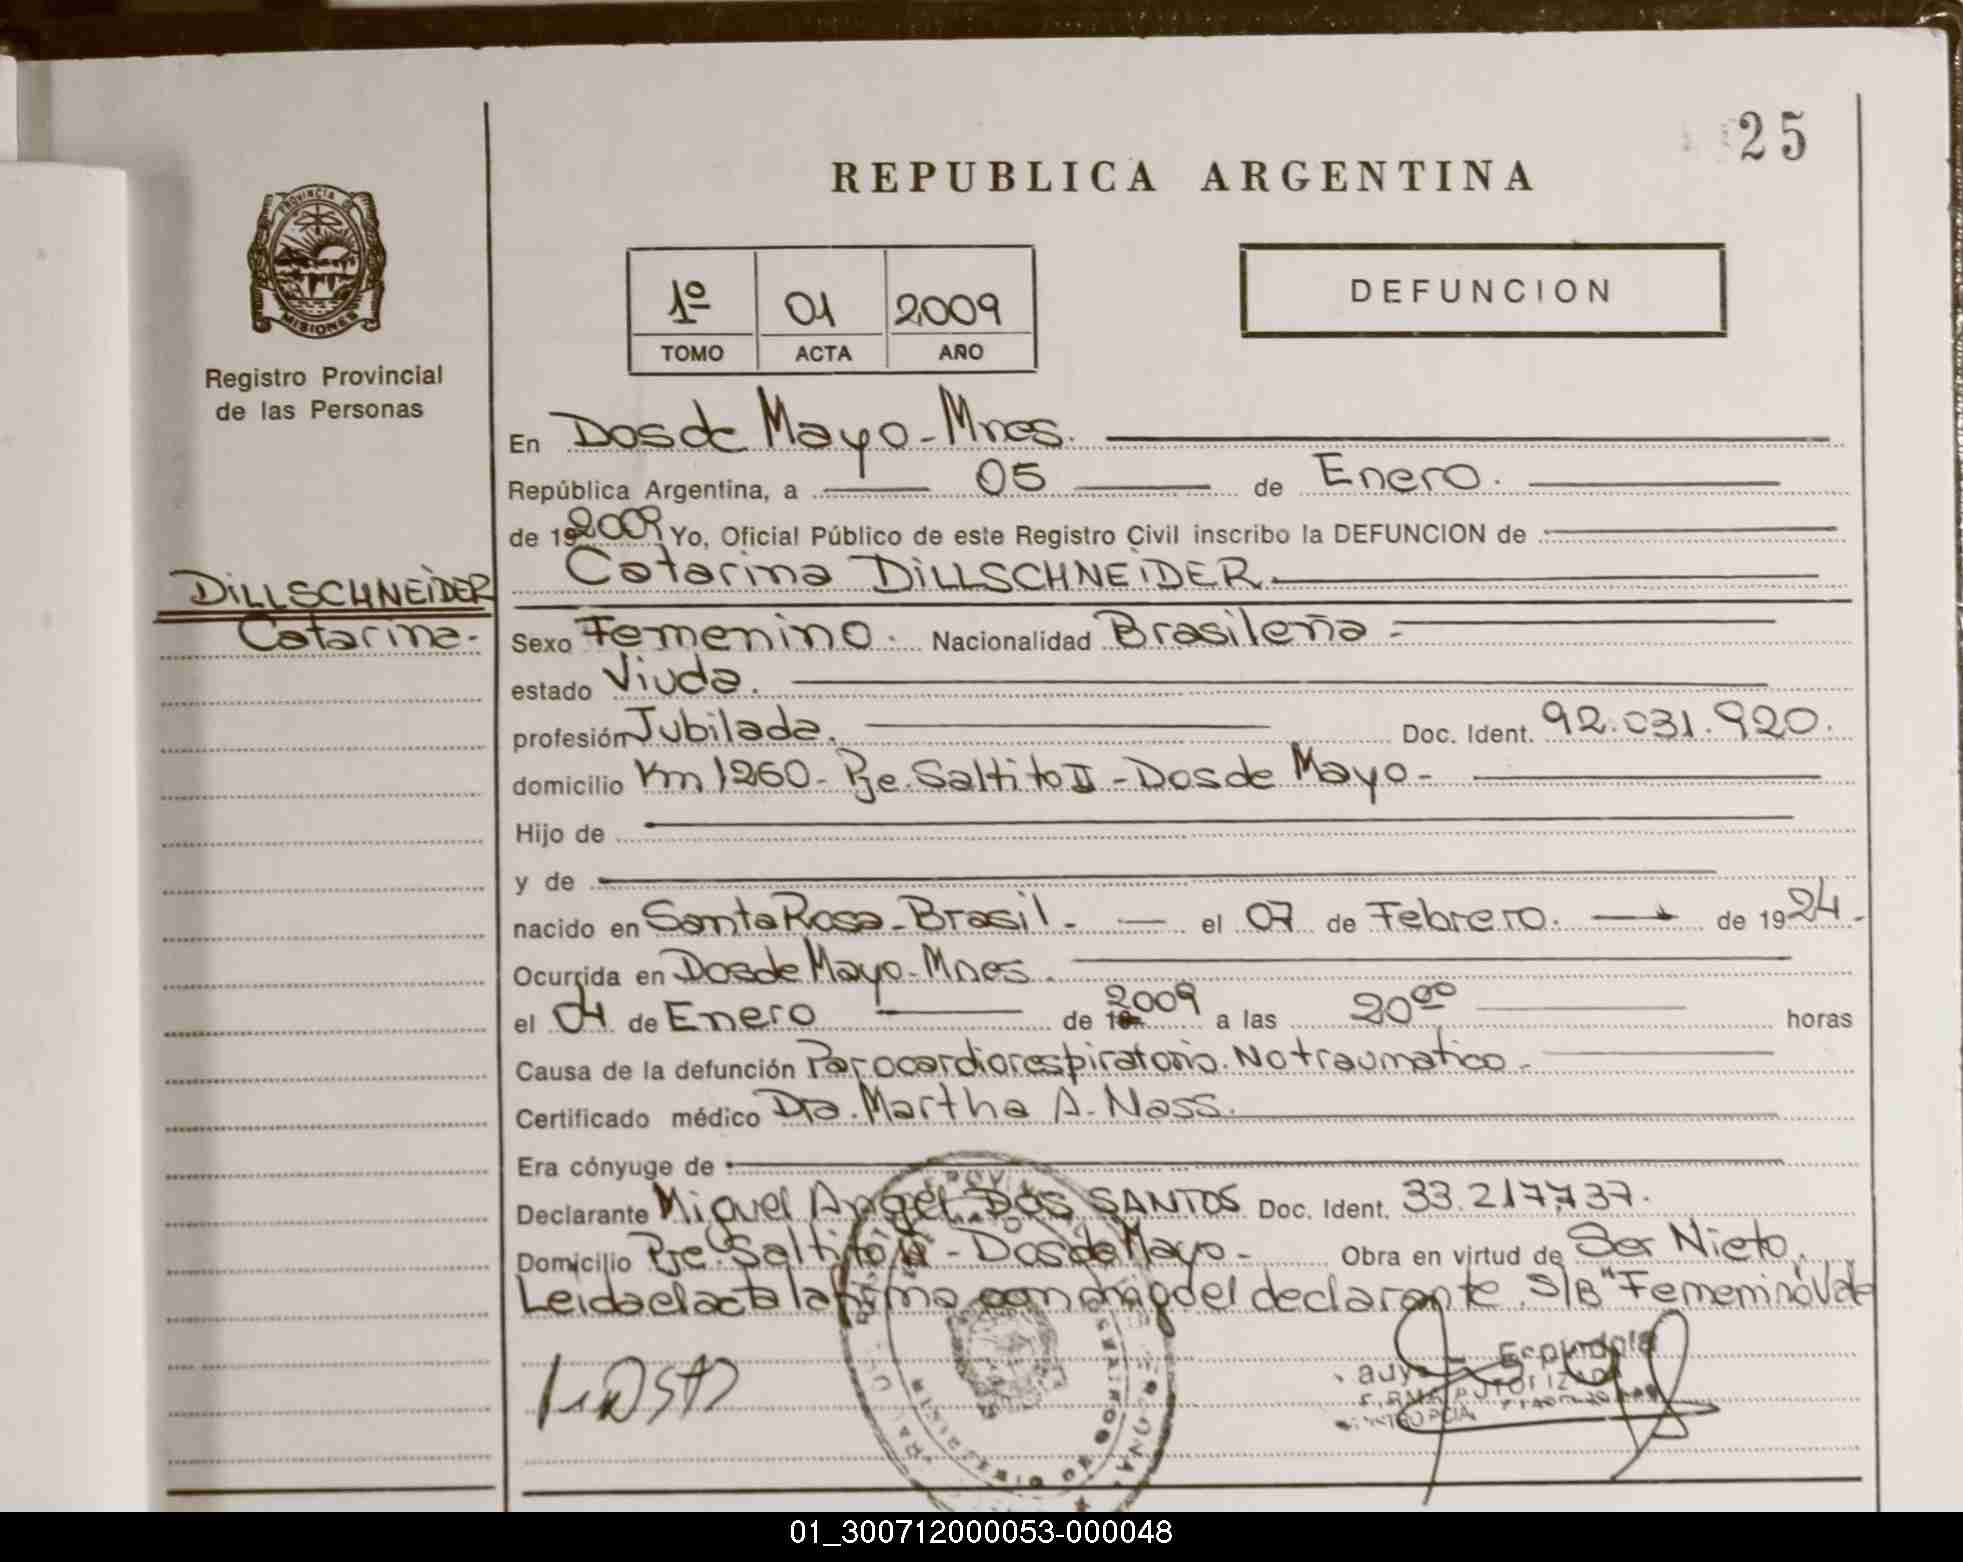 25
REPUBLICA ARGENTINA
PROVINCIA DE
MISIONES
Registro Provincial
de las Personas
1º 01 2009
TOMO ACTA AÑO
DEFUNCION
En Dos de Mayo - Mnes.
República Argentina, a 05 de Enero.
de 19 2009 Yo, Oficial Público de este Registro Civil inscribo la DEFUNCION de
Catarina DILLSCHNEIDER.
DILLSCHNEIDER
Catarina.
Sexo Femenino. Nacionalidad Brasileña -
estado Viuda.
profesión Jubilada. Doc. Ident. 92.031.920.
domicilio Km 1260 - Pje. Saltito II - Dos de Mayo -
Hijo de
y de
nacido en Santa Rosa - Brasil. - el 07 de Febrero. de 19 24 -
Ocurrida en Dos de Mayo - Mnes.
el 04 de Enero de 2009 a las 20⁰⁰ horas
Causa de la defunción Parocardiorespiratorio. No traumatico -
Certificado médico Dra. Martha A. Nass.
Era cónyuge de
Declarante Miguel Angel DOS SANTOS Doc. Ident. 33.217.737.
Domicilio Pje. Saltito II - Dos de Mayo - Obra en virtud de Ser Nieto.
Leida el acta la firma conmigo del declarante. S/B "Femenino" Vale
Espindola
01_300712000053-000048